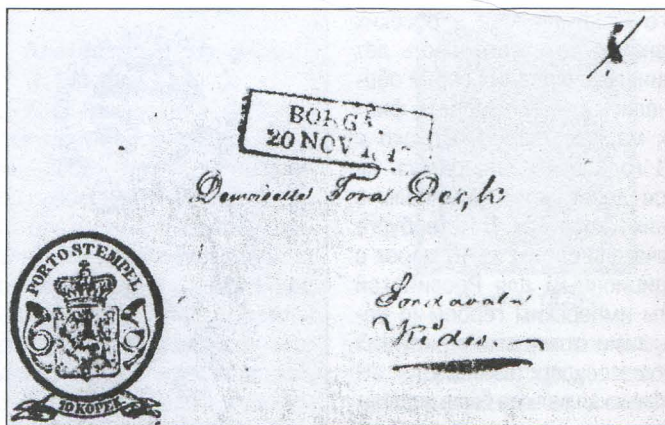 BORGÅ
20 NOV
Demoiselle Tora
Sordavala
PORTO STEMPEL
10 KOPEK